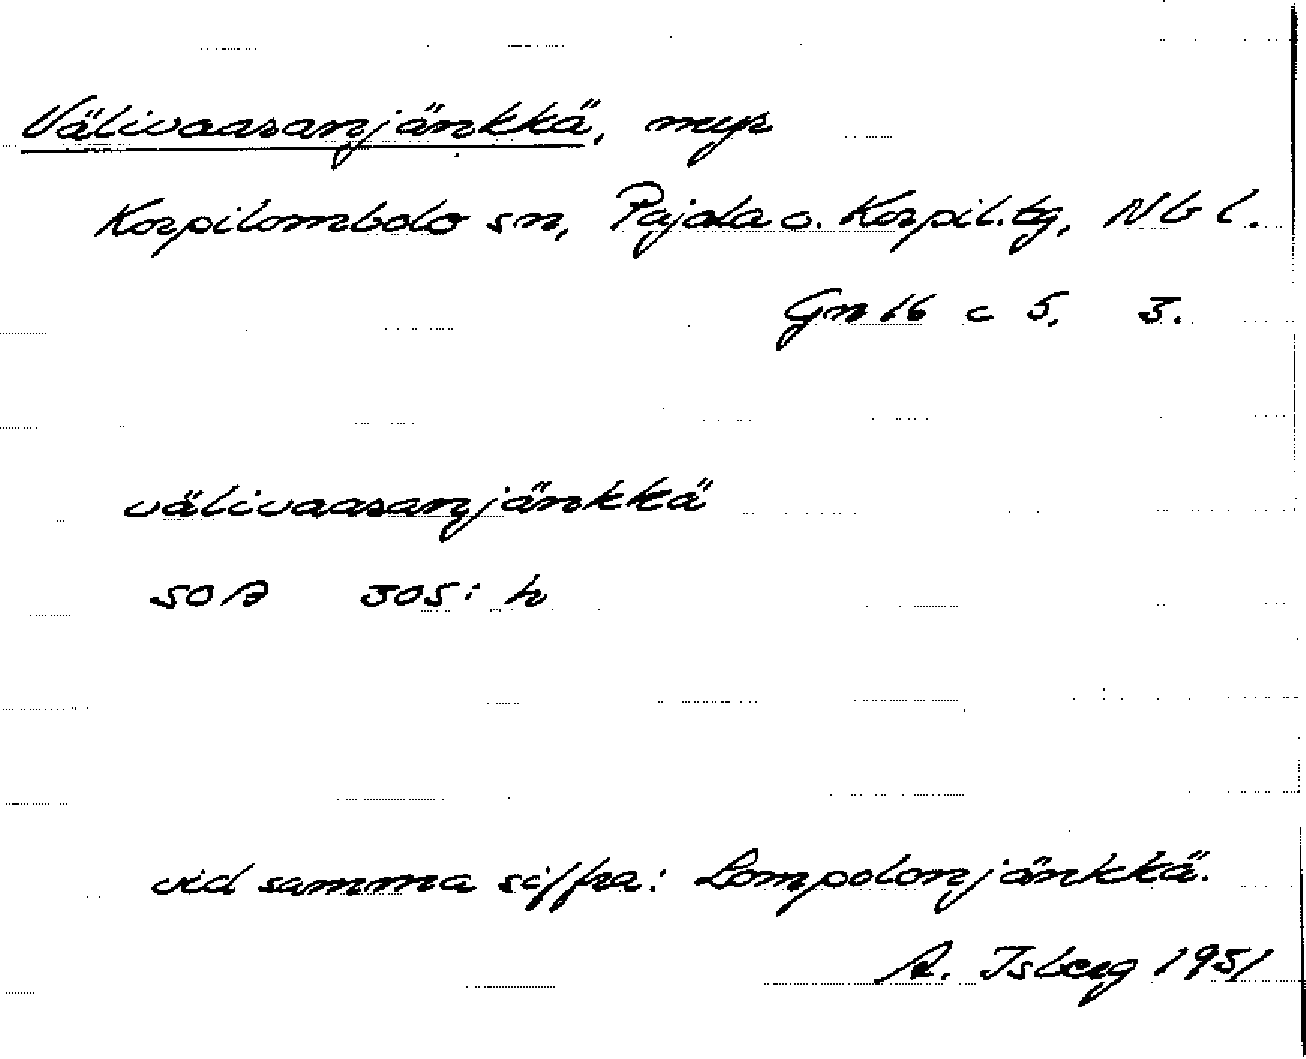 Välivaaranjänkkä, myr
Korpilombolo sn, Pajala o. Korpil. tg, Nb l.
Gn 16 c 5, 3.
välivaaranjänkkä
SOA 305: h
vid samma siffra: Lompolonjänkkä.
A. Isberg 1951